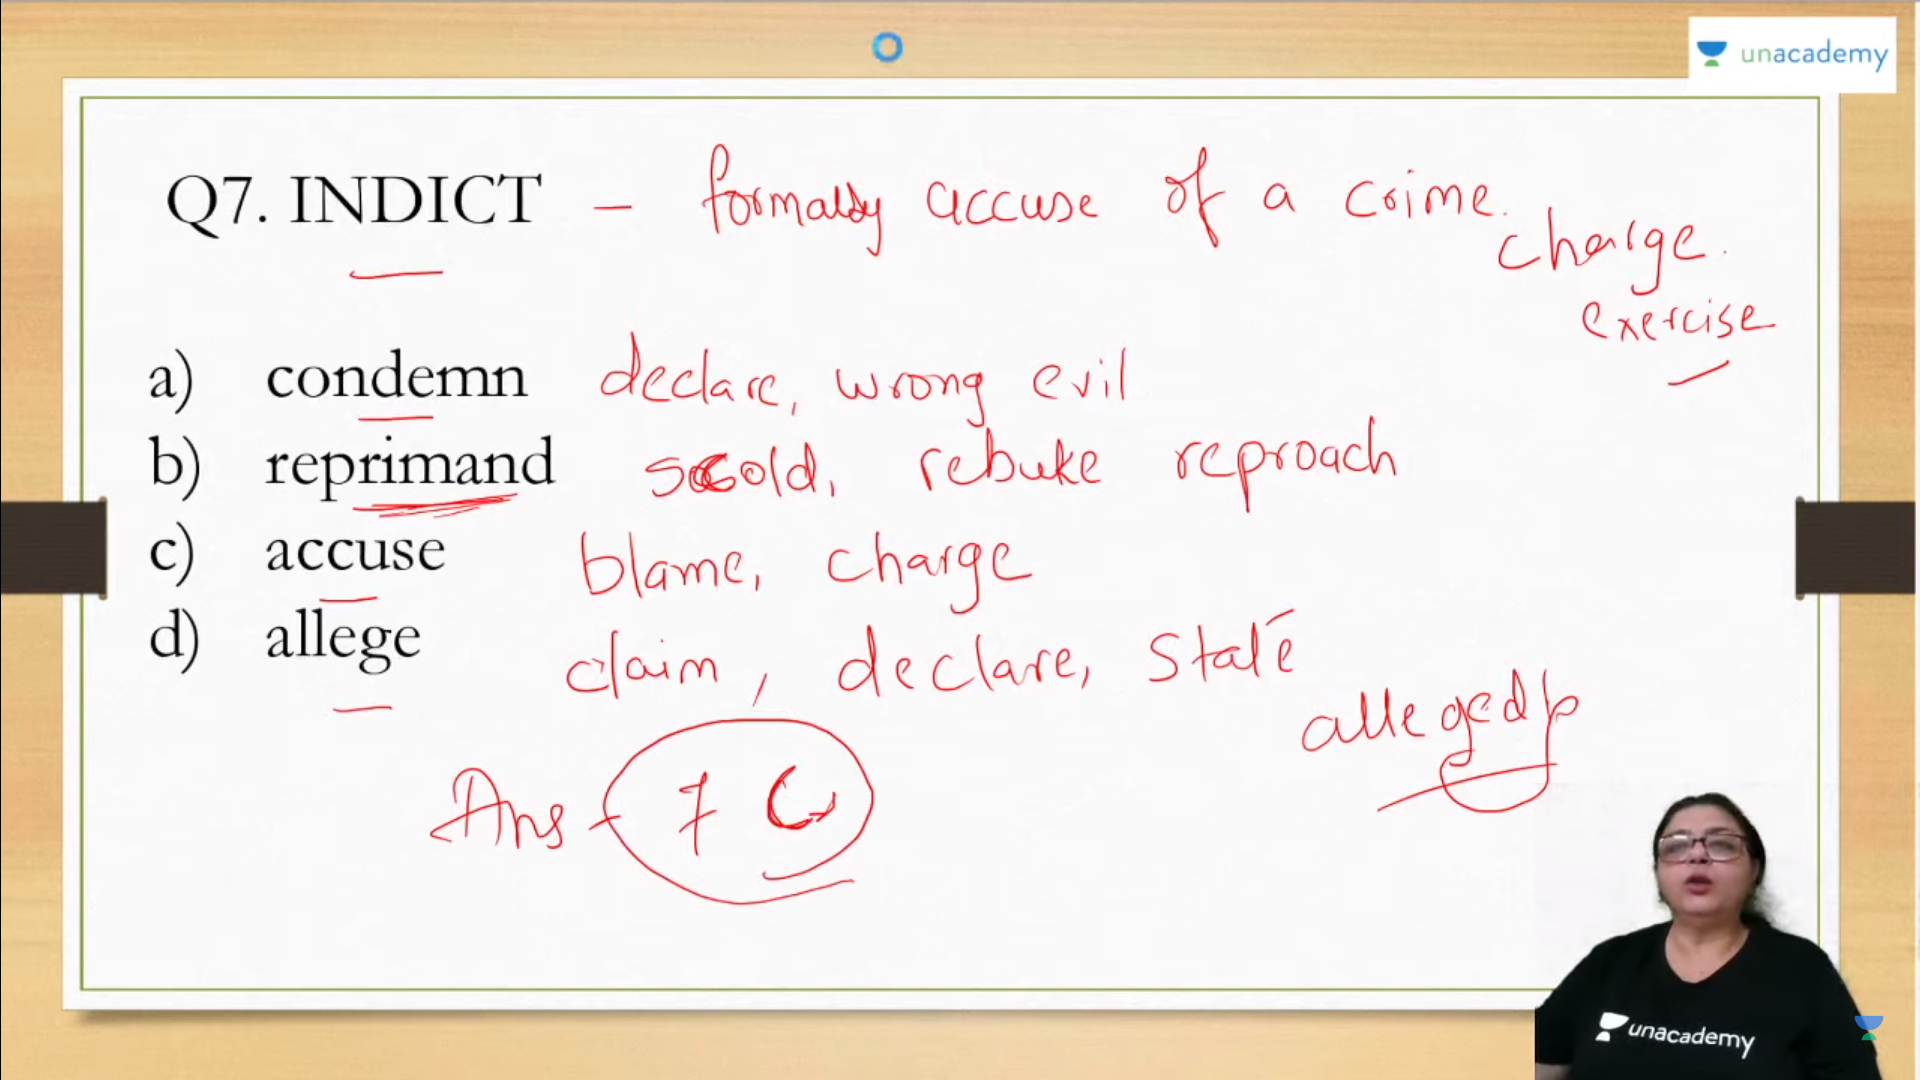 unacademy
Q7. INDICT – formally accuse of a crime.
charge.
exercise
a) condemn declare, wrong evil
b) reprimand scold, rebuke reproach
c) accuse blame, charge
d) allege claim, declare, state
alleged
Ans - 7 C
unacademy